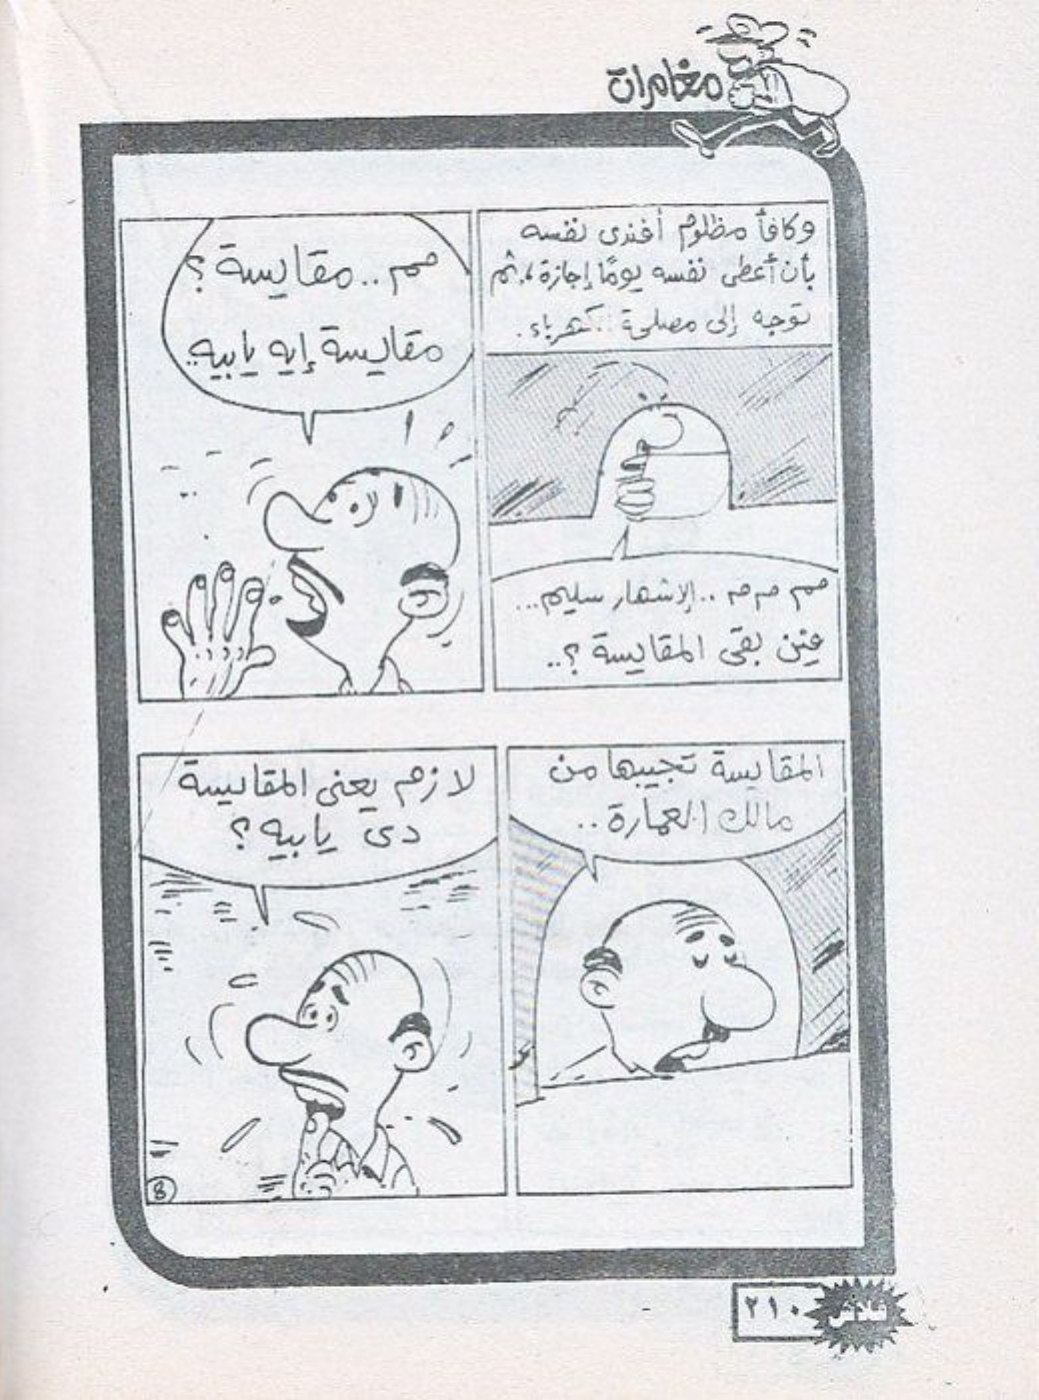 مغامرات
وكافأ مظلوم أفندى نفسه
بأن أعطى نفسه يومًا إجازة،، ثم
توجه إلى مصلحة الكهرباء.
همم مم مم .. الإشهار سليم...
فين بقى المقايسة ؟..
همم .. مقايسة ؟
مقايسة إيه يا بيه..
المقايسة تجيبها من
مالك العمارة ..
لازم يعنى المقايسة
دى يا بيه ؟
8
فلاش ٢١٠